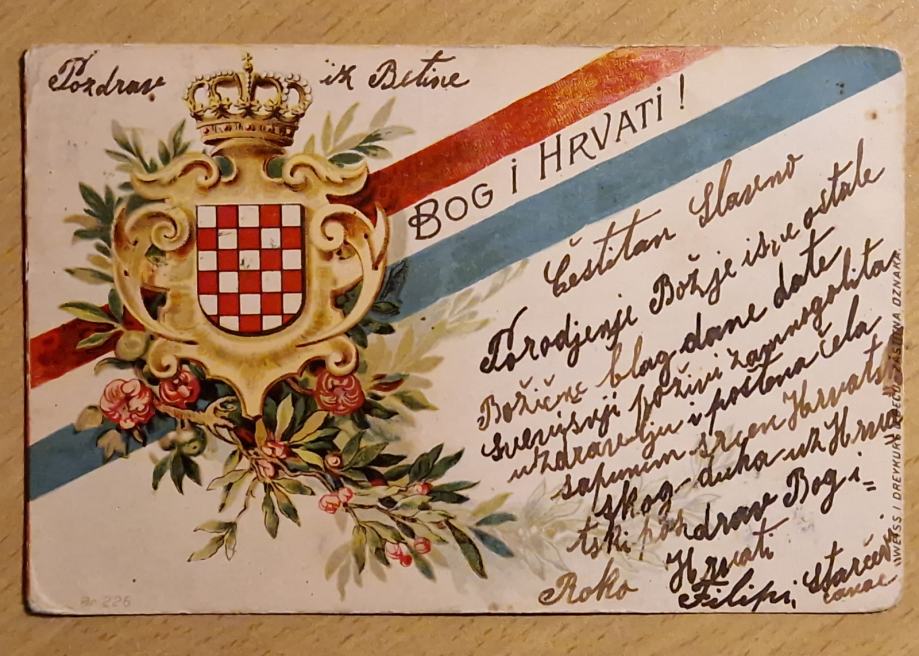 Pozdrav iz Betine
BOG I HRVATI!
Čestitan Slavno
Porodjenje Božje i sve ostale
Božićne blag dane date
svevišnji poživi zamnogolita
uzdravlju i poštena čela
sapunim srcen Hrvats
skog duha uz Hrva
tski pozdrav Bog i=
Hrvati
Roko Filipi, Starčevi
canac
WEISS I DREYKURS, ZAŠTITNA OZNAKA.
Br 226